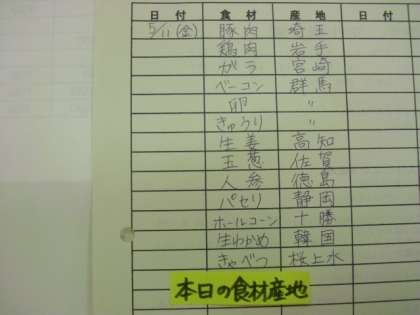 日付 食材 産地 日付
5/11(金) 豚肉 埼玉
鶏肉 岩手
ガラ 宮崎
ベーコン 群馬
卵 〃
きゅうり 〃
生姜 高知
玉葱 佐賀
人参 徳島
パセリ 静岡
ホールコーン 十勝
生わかめ 韓国
きゃべつ 桜上水
本日の食材産地